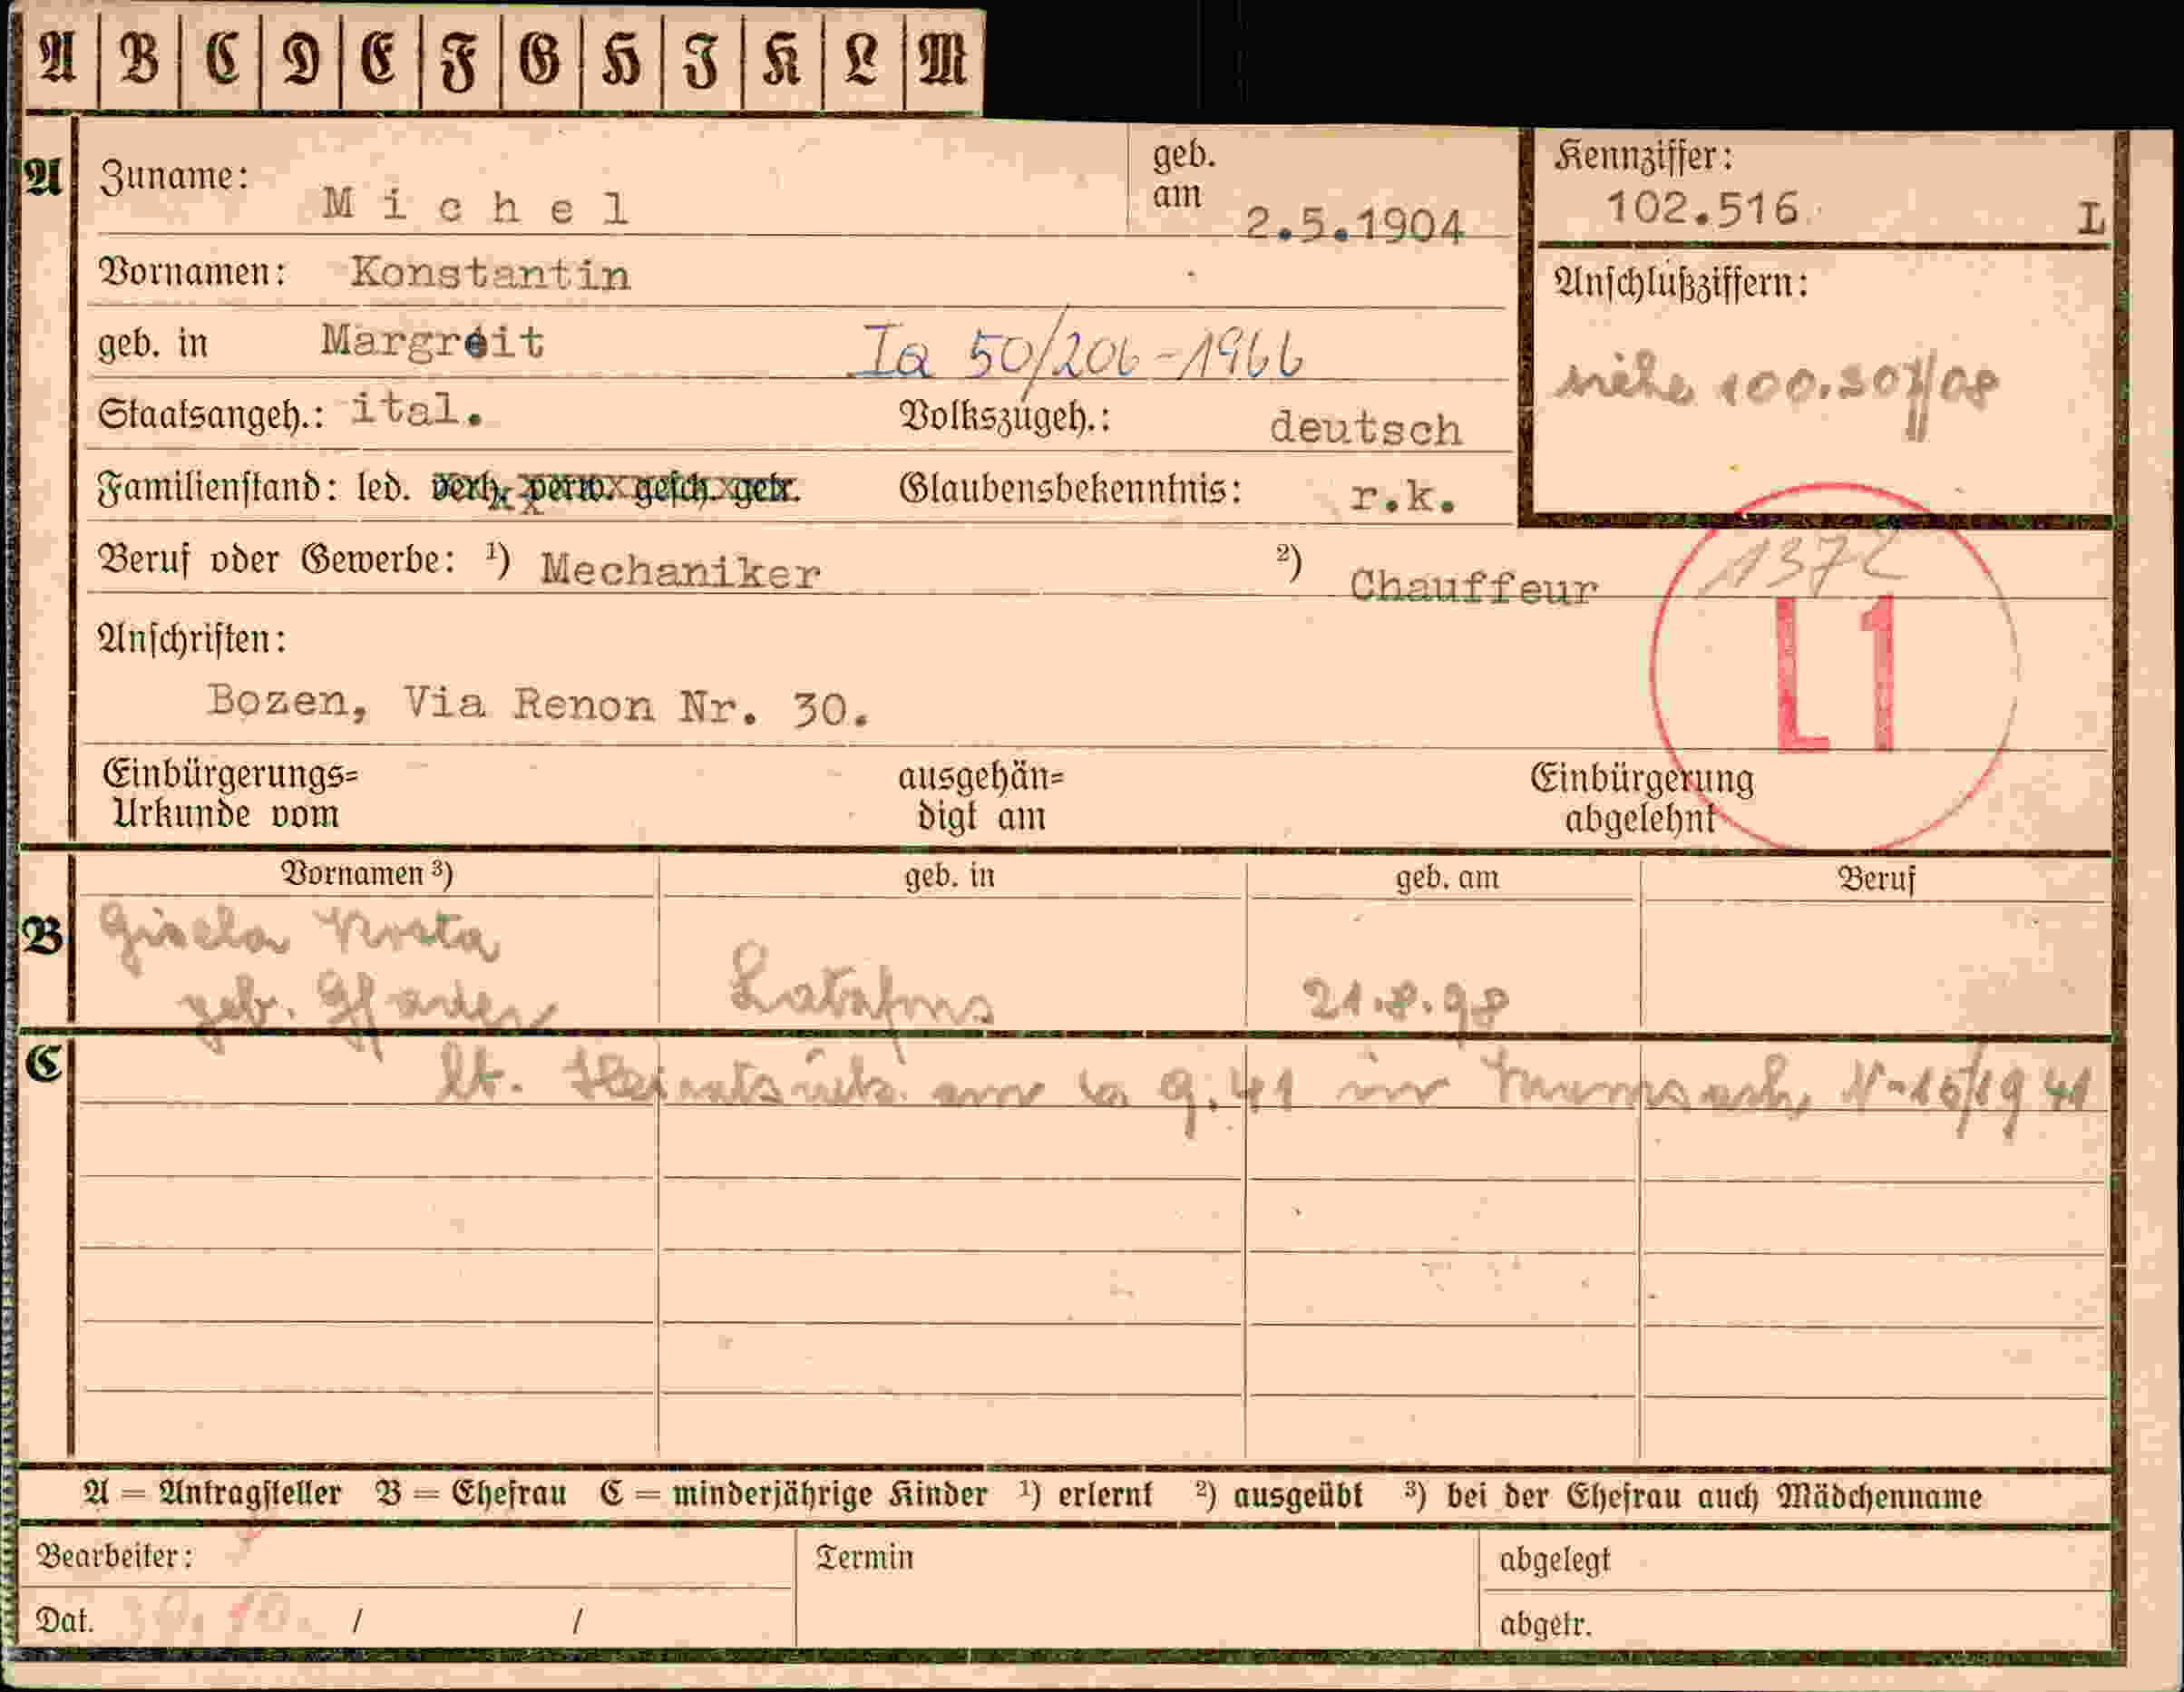 A B C D E F G H I K L M
A Zuname: Michel geb. am 2.5.1904 Kennziffer: 102.516 L
Vornamen: Konstantin
geb. in Margreit Ia 50/206-1966
Anschlußziffern:
siehe 100.307/08
Staatsangeh.: ital. Volkszugeh.: deutsch
Familienstand: led. verh. verw. gesch. getr. Glaubensbekenntnis: r.k.
Beruf oder Gewerbe: ¹) Mechaniker ²) Chauffeur
1372
L1
Anschriften:
Bozen, Via Renon Nr. 30.
Einbürgerungs= ausgehän= Einbürgerung
Urkunde vom digt am abgelehnt
Vornamen ³) geb. in geb. am Beruf
B Gisela
geb. Latzfons 21.8.98
C lt. Heiratsurk. 9.41 in N-15/1941
A = Antragsteller B = Ehefrau C = minderjährige Kinder ¹) erlernt ²) ausgeübt ³) bei der Ehefrau auch Mädchenname
Bearbeiter: Termin abgelegt
Dat. 30.10. / / abgetr.